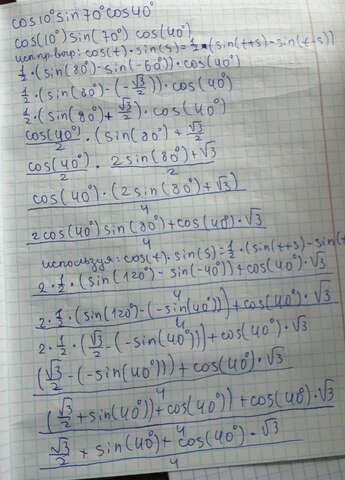 cos10°sin70°cos40°
cos(10°)sin(70°) cos(40°)
испр. выр: cos(t)·sin(s)=1/2·(sin(t+s)-sin(t-s))
1/2·(sin(80°)-sin(-60°))·cos(40°)
1/2·(sin(80°)-(-√3/2))·cos(40°)
1/2·(sin(80°)+√3/2)·cos(40°)
cos(40°)/2·(sin(80°)+√3/2
cos(40°)/2·2sin(80°)+√3/2
cos(40°)·(2sin(80°)+√3)/4
2cos(40°)sin(80°)+cos(40°)·√3/4
используя: cos(t)·sin(s)=1/2·(sin(t+s)-sin(t
2·1/2·(sin(120°)-sin(-40°))+cos(40°)·√3/4
2·1/2·(sin(120°)-(-sin(40°))+cos(40°)·√3/4
2·1/2·(√3/2-(-sin(40°))+cos(40°)·√3
(√3/2-(-sin(40°)))+cos(40°)·√3/4
(√3/2+sin(40°))+cos(40°))+cos(40°)·√3/4
√3/2+sin(40°)+cos(40°)·√3/4